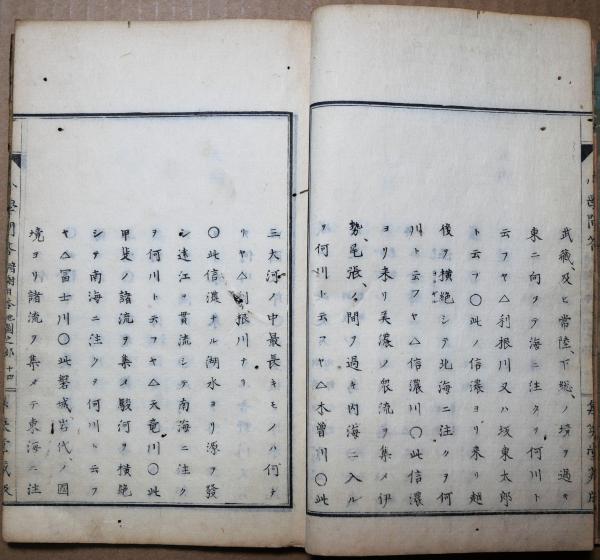 武藏、及ヒ常陸、下総、ノ境ヲ過キ
東ニ向ヲテ海ニ注クヲ何川ト
云フヤ△利根川又ハ坂東太郎
ト云フ〇此ノ信濃ヨリ来リ越
後ヲ横絶シテ北海ニ注クヲ何
川ト云フヤ△信濃川〇此信濃
ヨリ来リ美濃ノ衆流ヲ集メ伊
勢、尾張、ノ間ヲ過キ内海ニ入ル
ヲ何川ト云フヤ△木曽川〇此
三大河ノ中最長キモノハ何ナ
リヤ△利根川ナリ
〇此信濃ナル湖水ヨリ源ヲ發
シ遠江ヲ貫流シテ南海ニ注ク
ヲ何川ト云フヤ△天竜川〇此
甲斐ノ諸流ヲ集メ駿河ヲ横絶
シテ南海ニ注クヲ何川ト云フ
ヤ△冨士川〇此磐城岩代、ノ國
境ヨリ諸流ヲ集メテ東海ニ注
小學問答 日本地圖之部 十四